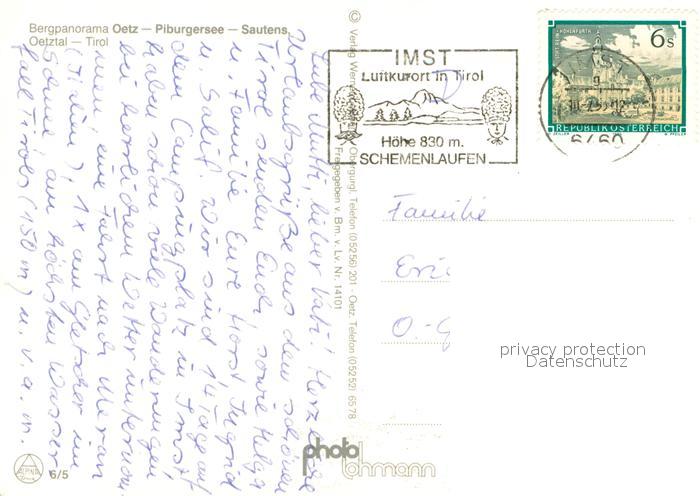 Bergpanorama Oetz — Piburgersee — Sautens,
Oetztal — Tirol
© Verlag
Obergurgl. Telefon (05256) 201 - Oetz. Telefon (05252) 6578
Freigegeben v. Bm. v. Lv. Nr. 14101
IMST
Luftkurort in Tirol
Höhe 830 m.
SCHEMENLAUFEN
6460
6 s
REPUBLIK ÖSTERREICH
Liebe Mutti, lieber Vati! Herzliche
Urlaubsgrüße aus dem schönen
Tirol senden Euch, sowie Helga
u. Familie Eure Horst, Ingrid
u. Wir sind 14 Tage auf
dem Campingplatz in Imst
haben schon viele Wanderungen
bei herrlichem Wetter unternom-
men, eine Fahrt nach Meran
(Italien), 1x am Gletscher im
Schnee, am höchsten Wasser-
fall Tirols (150 m) u. v. a. m.
Familie
Eric
O.-G
privacy protection
Datenschutz
photo
lohmann
6/5